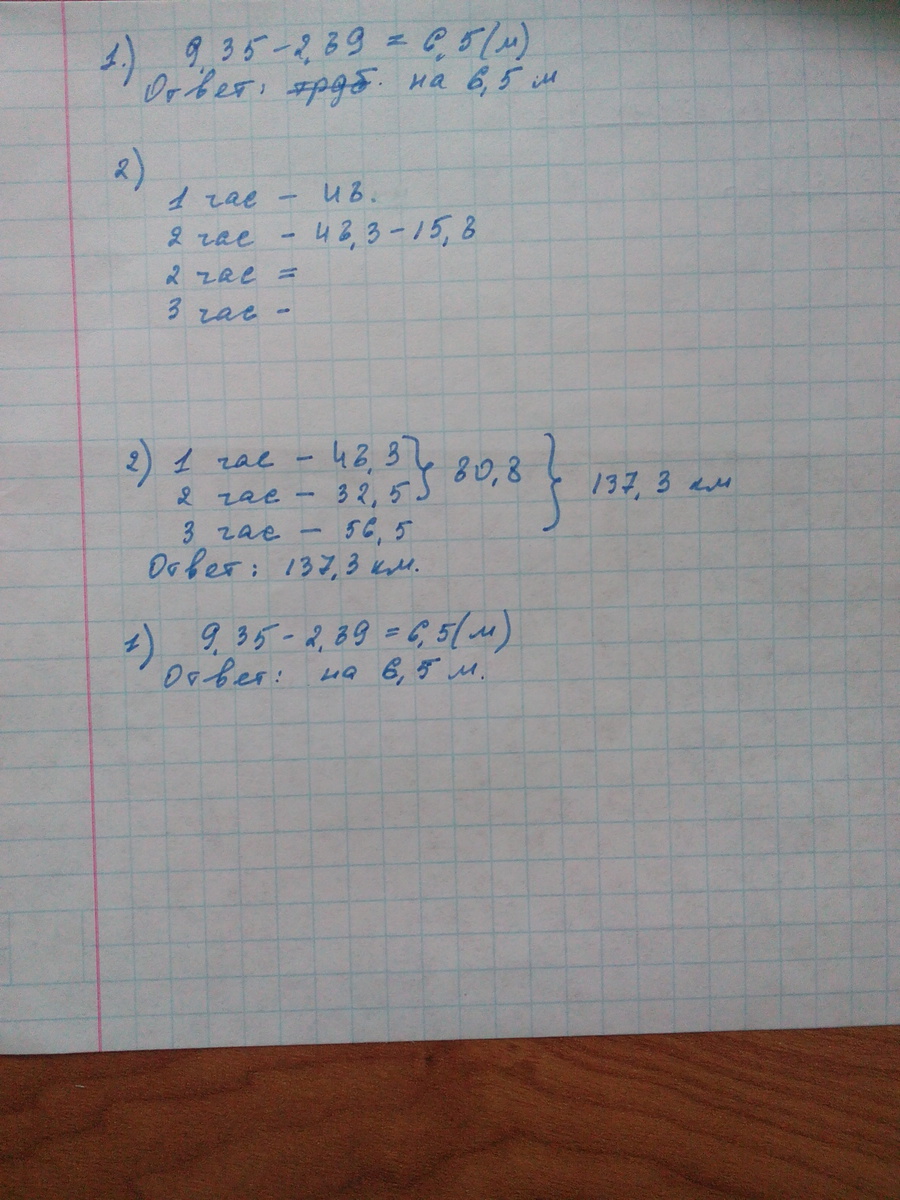 1.) 9,35 - 2,89 = 6,5(м)
Ответ: на 6,5 м
2)
1 час - 48.
2 час - 48,3 - 15,8
2 час =
3 час -
2) 1 час - 48,3 } 80,8 } 137,3 км
2 час - 32,5
3 час - 56,5
Ответ: 137,3 км.
1) 9,35 - 2,89 = 6,5(м)
Ответ: на 6,5 м.